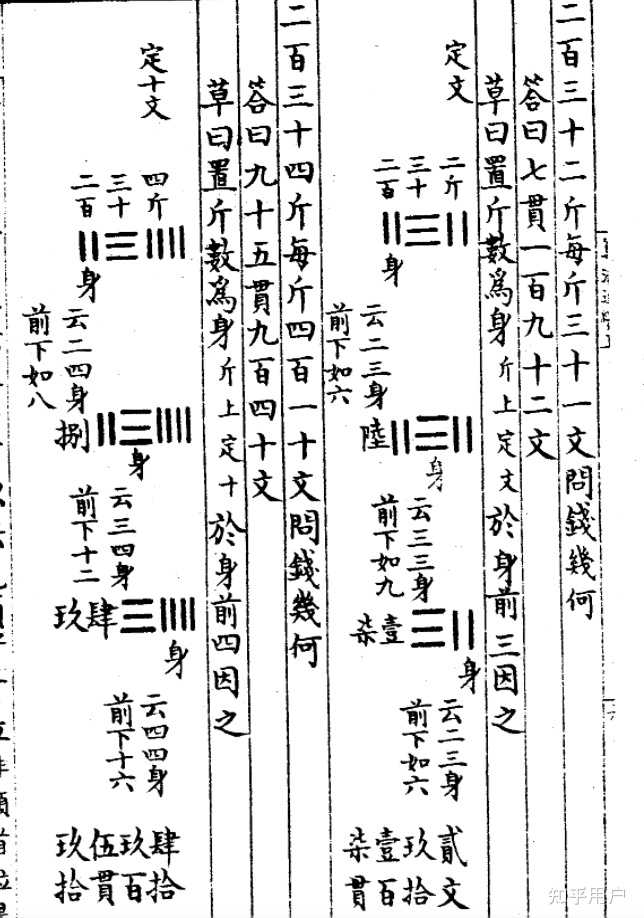 二百三十二斤每斤三十一文問錢幾何
答曰七貫一百九十二文
草曰置斤數爲身斤上定文於身前三因之
定文
二斤
三十
二百
身
云二三身
前下如六
陸
身
云三三身
前下如九
柒壹
身
云二三身
前下如六
貳文
玖十
壹百
柒貫
二百三十四斤每斤四百一十文問錢幾何
答曰九十五貫九百四十文
草曰置斤數爲身斤上定十於身前四因之
定十文
四斤
三十
二百
身
云二四身
前下如八
捌
身
云三四身
前下十二
玖肆
身
云四四身
前下十六
肆拾
玖百
伍貫
玖拾
知乎用户